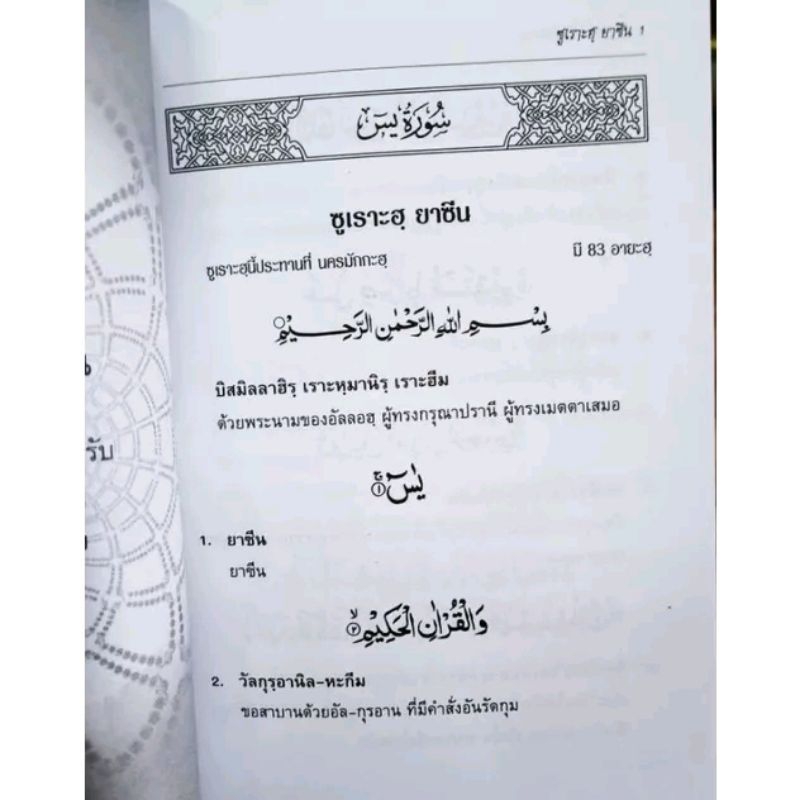 ซูเราะฮฺ ยาซีน 1
سُورَةُ يسٓ
ซูเราะฮฺ ยาซีน
ซูเราะฮฺนี้ประทานที่ นครมักกะฮฺ มี 83 อายะฮฺ
بِسْمِ اللّٰهِ الرَّحْمٰنِ الرَّحِيْمِ
บิสมิลลาฮิรฺ เราะหฺมานิรฺ เราะฮีม
ด้วยพระนามของอัลลอฮฺ ผู้ทรงกรุณาปรานี ผู้ทรงเมตตาเสมอ
يٰسٓ ۚ ۝١
1. ยาซีน
ยาซีน
รับ
وَالْقُرْاٰنِ الْحَكِيْمِ ۙ ۝٢
2. วัลกุรฺอานิล-หะกีม
ขอสาบานด้วยอัล-กุรอาน ที่มีคำสั่งอันรัดกุม